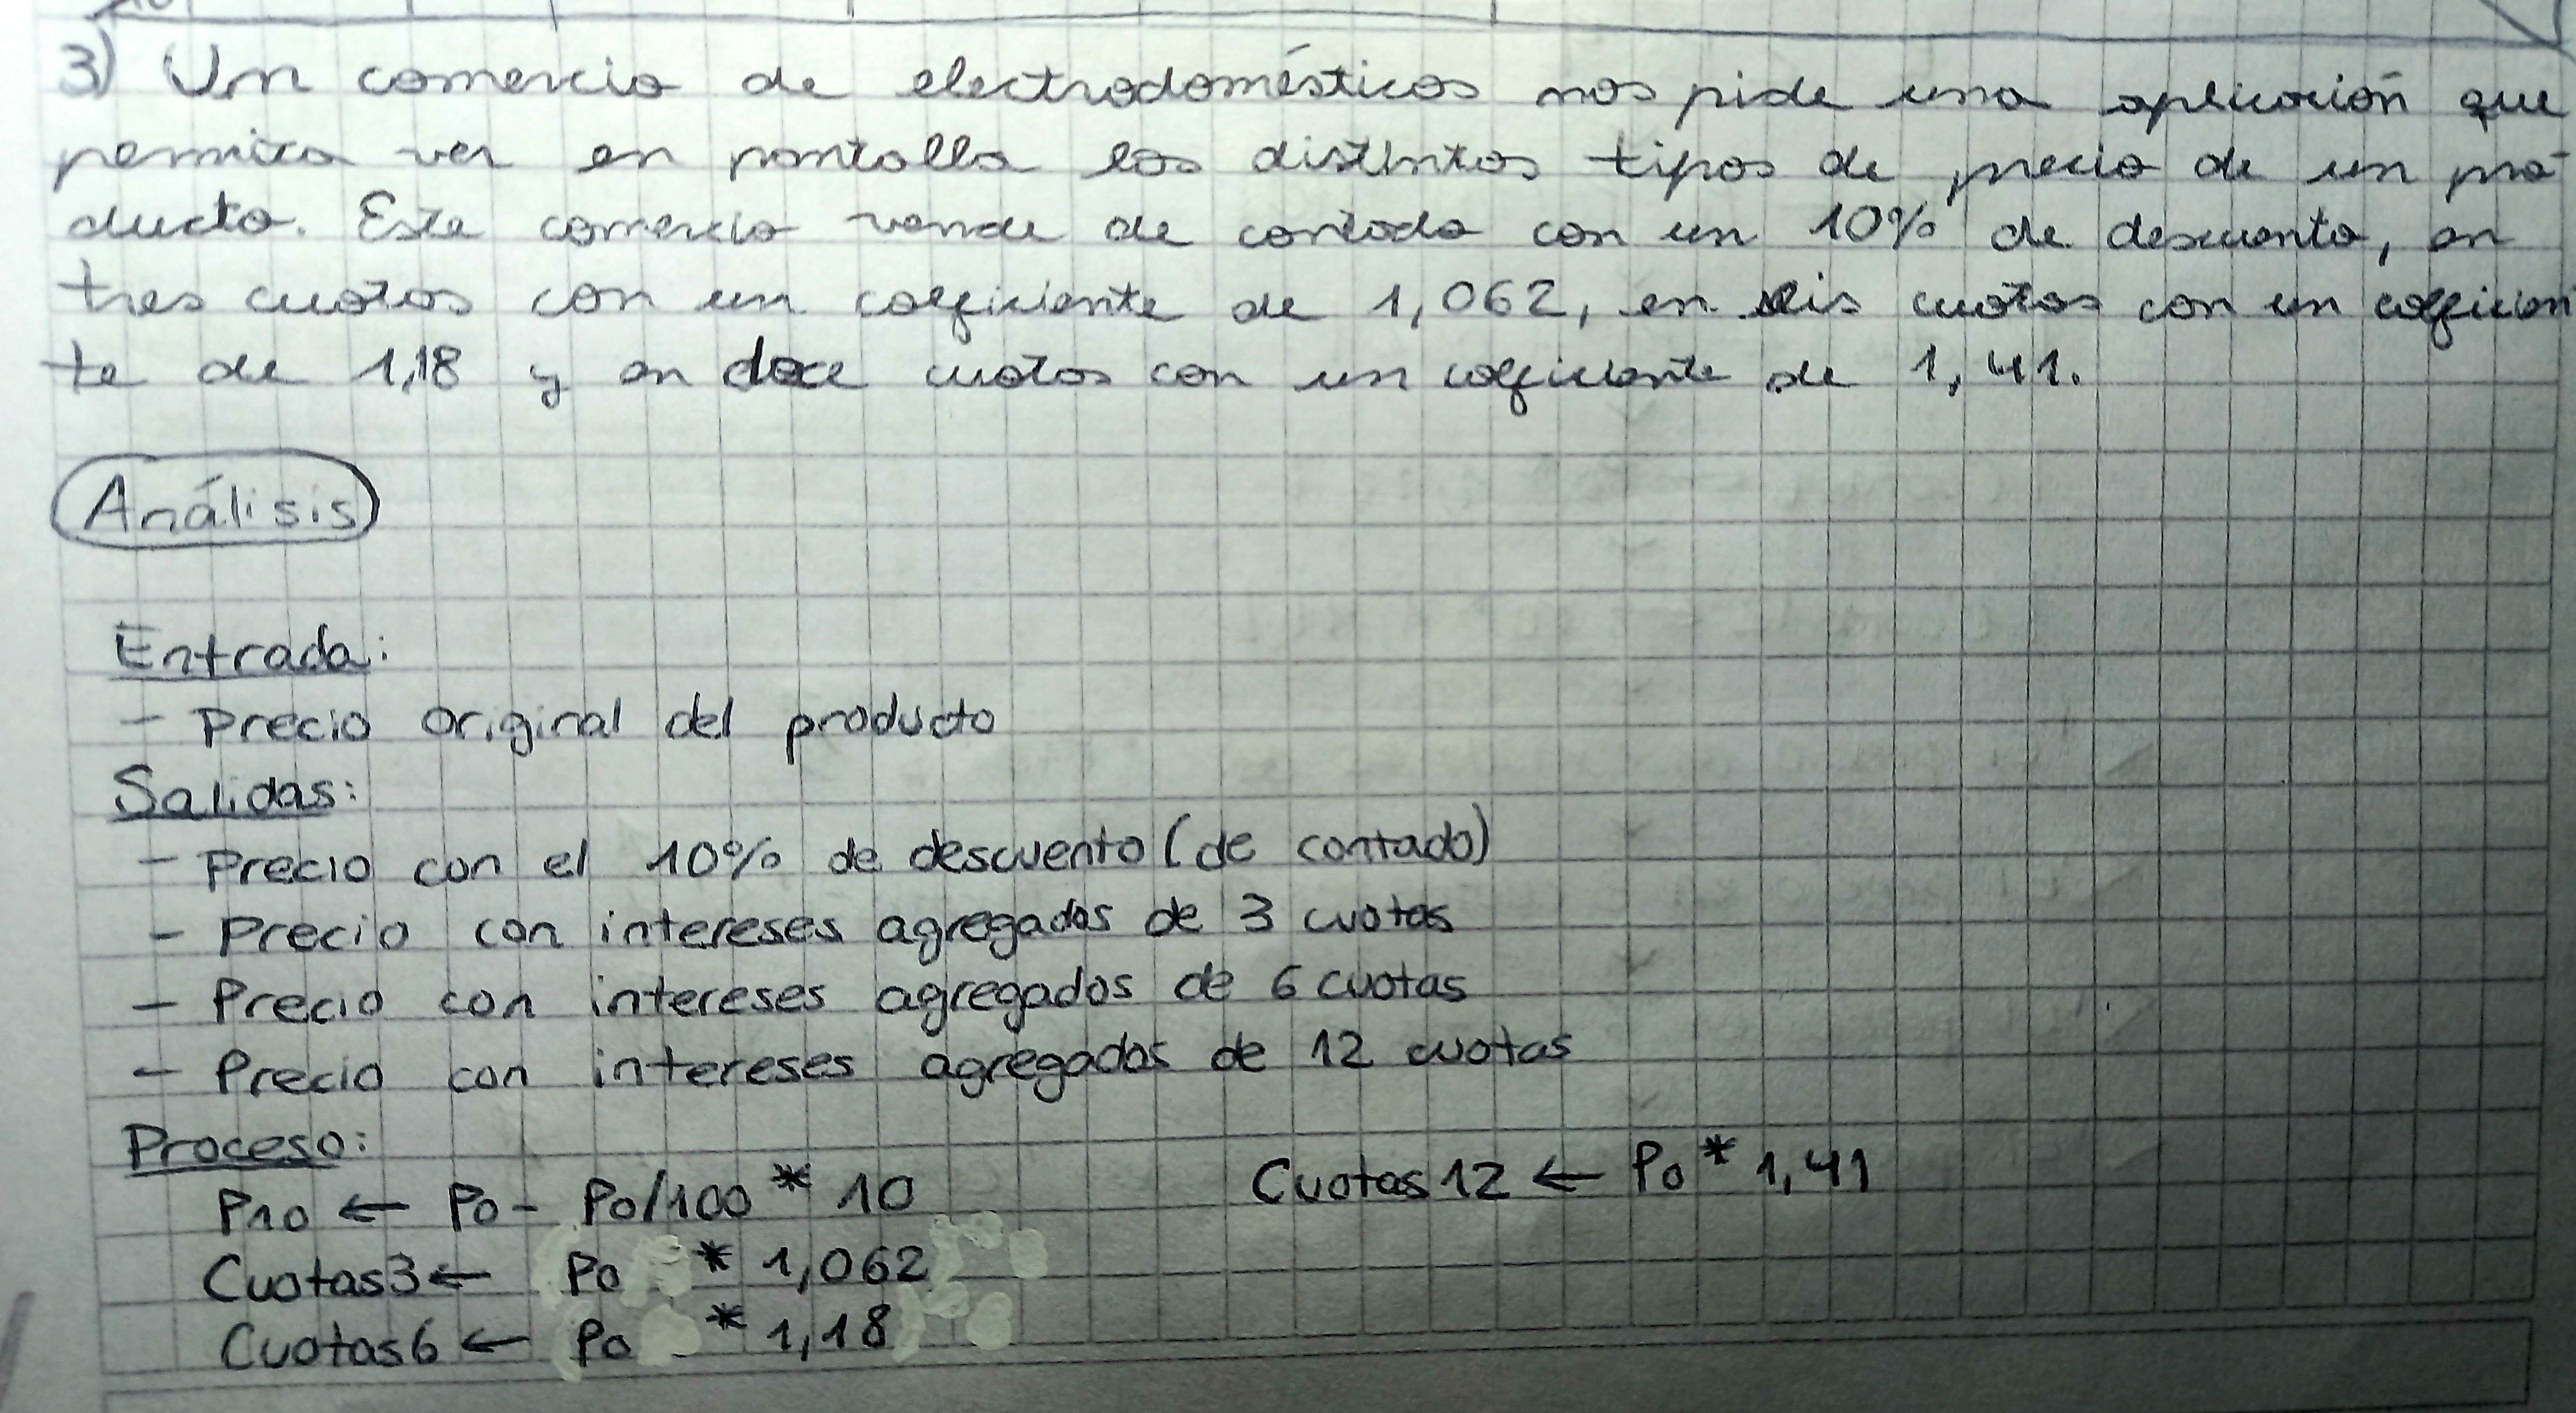 3) Un comercio de electrodomésticos nos pide una aplicación que
permita ver en pantalla los distintos tipos de precio de un pro-
ducto. Este comercio vende de contado con un 10% de descuento, en
tres cuotas con un coeficiente de 1,062, en seis cuotas con un coeficien
te de 1,18 y en doce cuotas con un coeficiente de 1,41.
Análisis
Entrada:
- Precio original del producto
Salidas:
- Precio con el 10% de descuento (de contado)
- Precio con intereses agregados de 3 cuotas
- Precio con intereses agregados de 6 cuotas
- Precio con intereses agregados de 12 cuotas
Proceso:
P10 ← Po - Po/100 * 10
Cuotas3 ← Po * 1,062
Cuotas6 ← Po * 1,18
Cuotas12 ← Po * 1,41